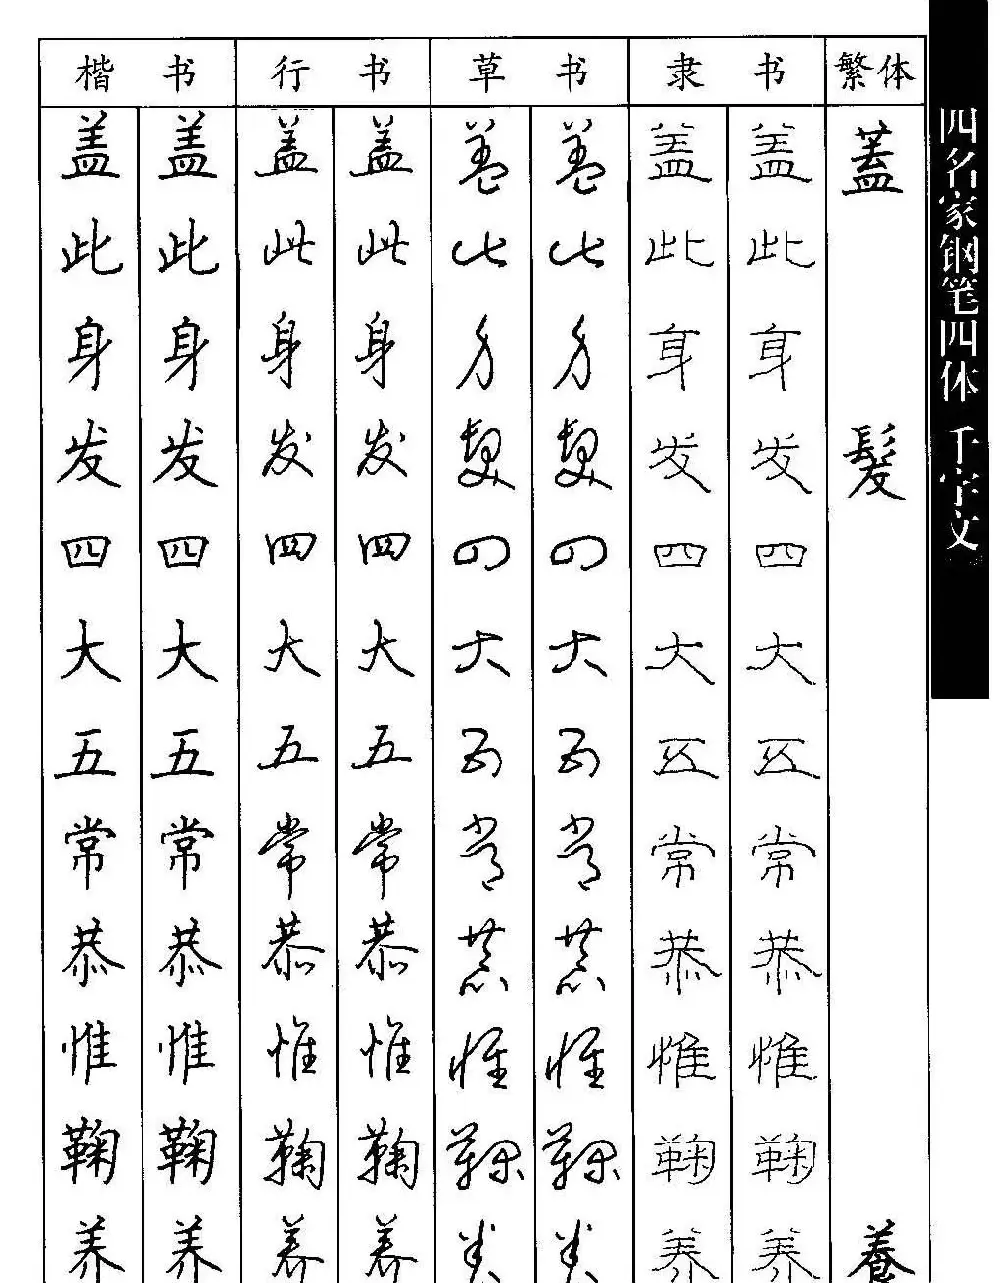 楷书 行书 草书 隶书 繁体
盖 盖 盖 盖 盖 盖 盖 盖 蓋
此 此 此 此 此 此 此 此
身 身 身 身 身 身 身 身
发 发 发 发 发 发 发 发 髮
四 四 四 四 四 四 四 四
大 大 大 大 大 大 大 大
五 五 五 五 五 五 五 五
常 常 常 常 常 常 常 常
恭 恭 恭 恭 恭 恭 恭 恭
惟 惟 惟 惟 惟 惟 惟 惟
鞠 鞠 鞠 鞠 鞠 鞠 鞠 鞠
养 养 养 养 养 养 养 养 養
四名家钢笔四体 千字文